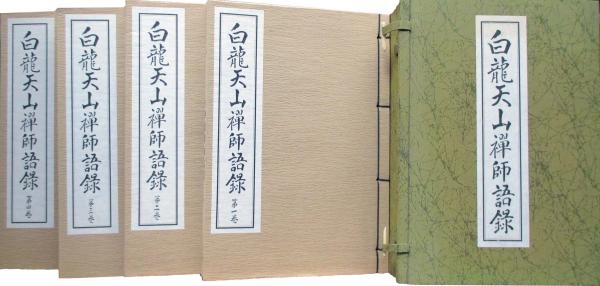 白龍天山禅師語録
第四巻
白龍天山禅師語録
第三巻
白龍天山禅師語録
第二巻
白龍天山禅師語録
第一巻
白龍天山禅師語録